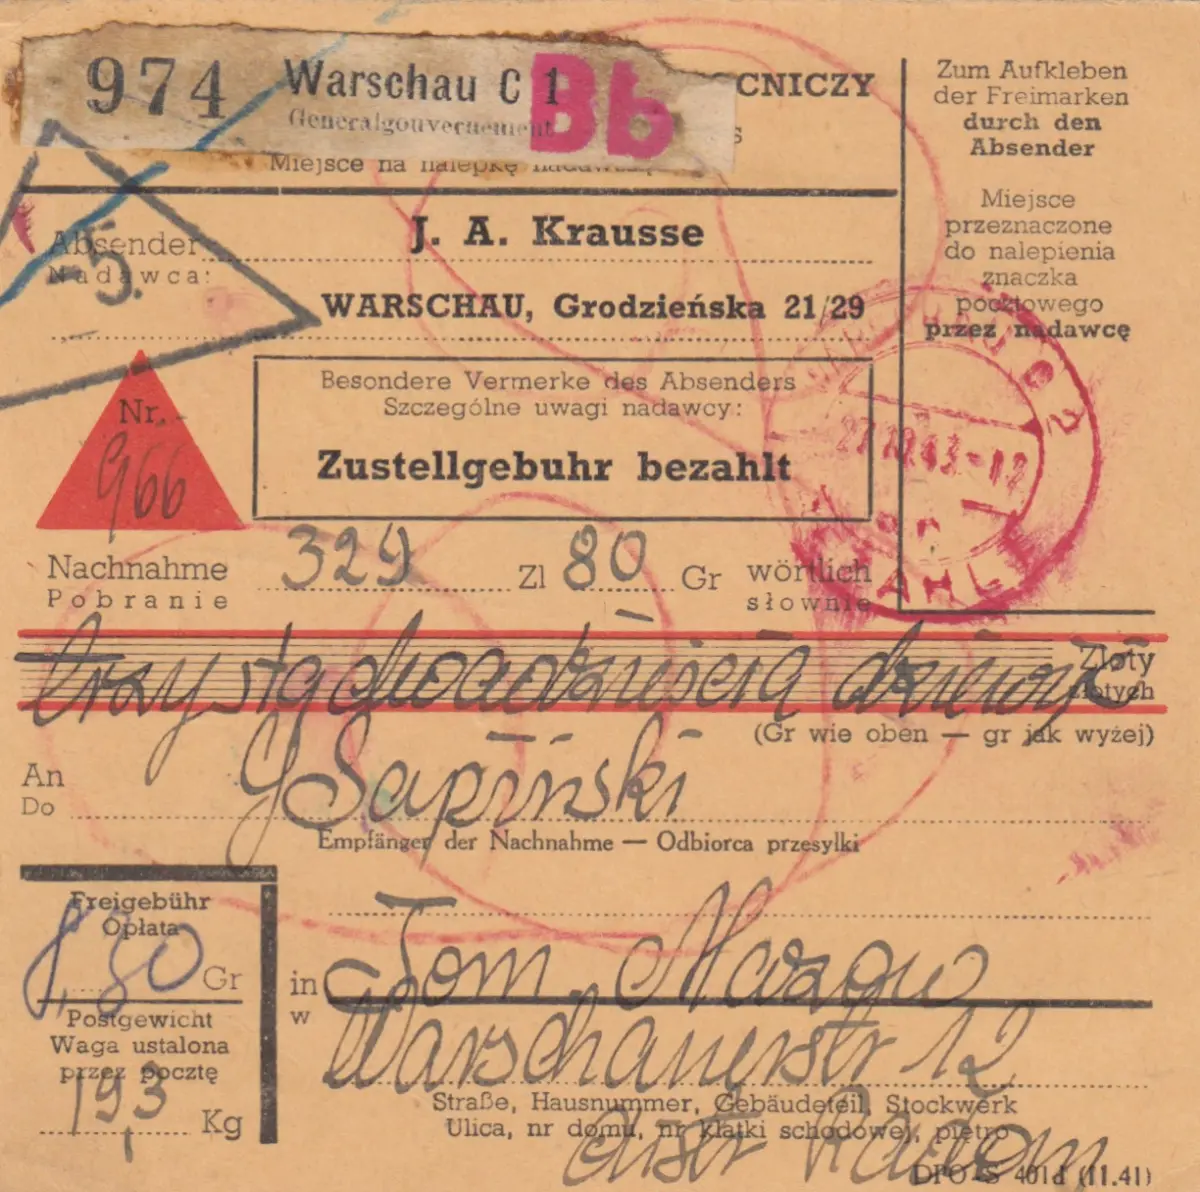 974 Warschau C 1 Bb
Generalgouvernement
CNICZY
Miejsce na nalepkę
Zum Aufkleben
der Freimarken
durch den
Absender
Miejsce
przeznaczone
do nalepienia
znaczka
pocztowego
przez nadawcę
5.
Absender
Nadawca:
J. A. Krausse
WARSCHAU, Grodzieńska 21/29
Besondere Vermerke des Absenders
Szczególne uwagi nadawcy:
Zustellgebuhr bezahlt
Nr.
966
27.10.43-12
Nachnahme 329 Zl 80 Gr wörtlich
Pobranie słownie
trzysta dwadzieścia dziewięć Zloty
złotych
(Gr wie oben — gr jak wyżej)
An G Sapiński
Do
Empfänger der Nachnahme — Odbiorca przesyłki
Freigebühr
Opłata
Gr
Postgewicht
Waga ustalona
przez pocztę
193 Kg
in Tom. Mazow
w Warschauerstr 12
Straße, Hausnummer, Gebäudeteil, Stockwerk
Ulica, nr domu, nr klatki schodowej, piętro
Distr Radom
DPO-S 401d (11.41)